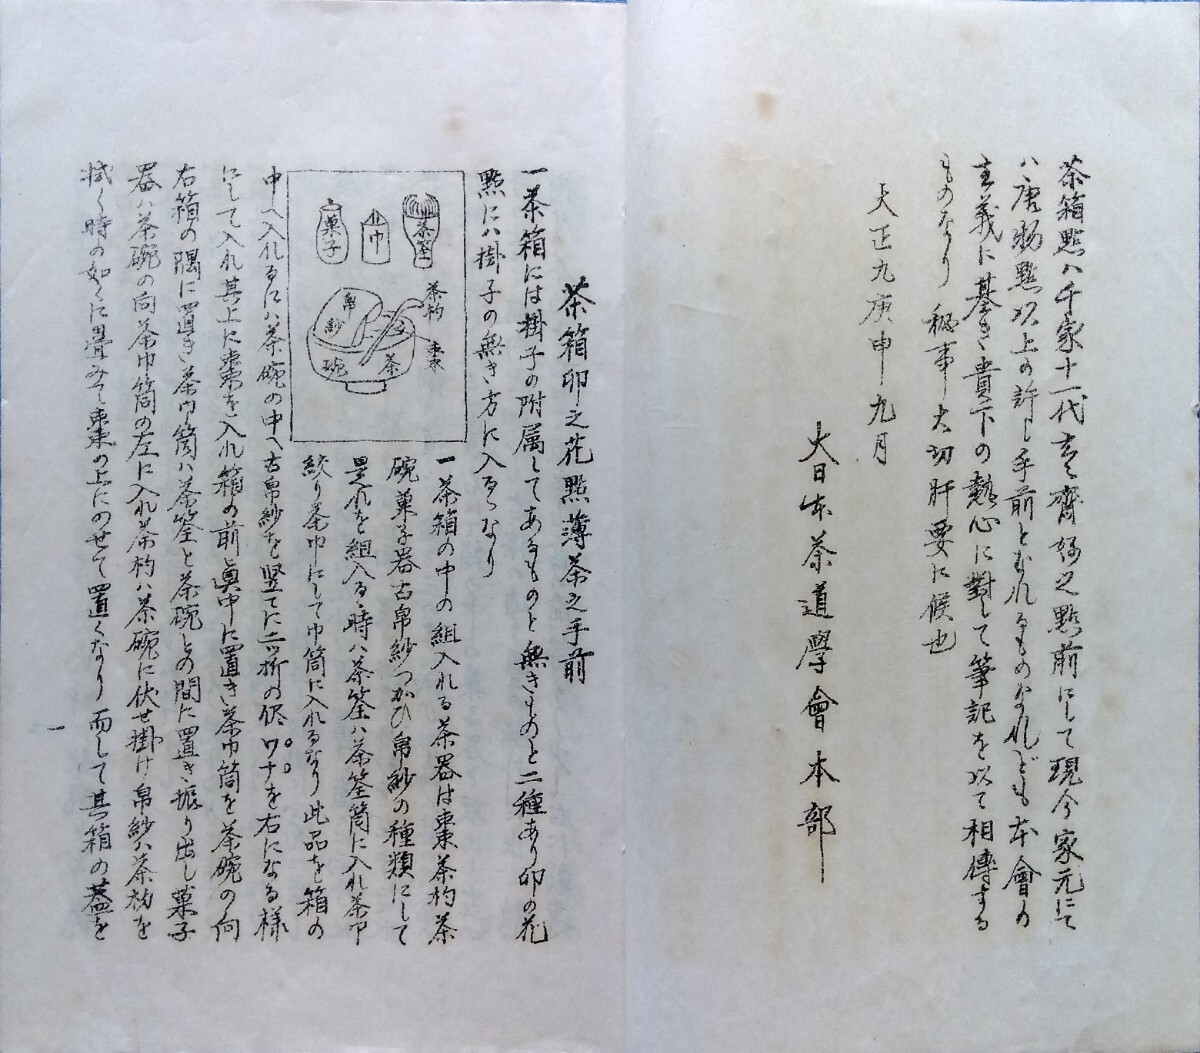 茶箱點ハ千家十一代玄々齋好之點前にして現今家元にて
ハ唐物點以上の許し手前とむれるものなれども本會の
主義に基き貴下の熱心に對して筆記を以て相傳する
ものなり 秘事大切肝要に候也
大正九庚申九月
大日本茶道學會本部
茶箱卯之花點薄茶之手前
一茶箱には掛子の附属してあるものと無きものと二種あり卯の花
點にハ掛子の無き方に入るゝなり
茶筌
巾
菓子
茶杓
帛紗
棗
碗
茶
一茶箱の中の組入れる茶器は棗茶杓茶
碗菓子器古帛紗つかひ帛紗の種類にして
是れを組入る時ハ茶筌ハ茶筌筒に入れ茶巾
絞り茶巾にして巾筒に入れるなり此品を箱の
中へ入れるにハ茶碗の中へ古帛紗を竪てに二ッ折の侭ワナを右になる様
にして入れ其上に棗を入れ箱の前眞中に置き茶巾筒を茶碗の向
右箱の隅に置き茶巾筒ハ茶筌と茶碗との間に置き振り出し菓子
器ハ茶碗の向茶巾筒の左に入れ茶杓ハ茶碗に伏せ掛け帛紗ハ茶杓を
拭く時の如くに畳みて棗の上にのせて置くなり而して其箱の蓋を
一